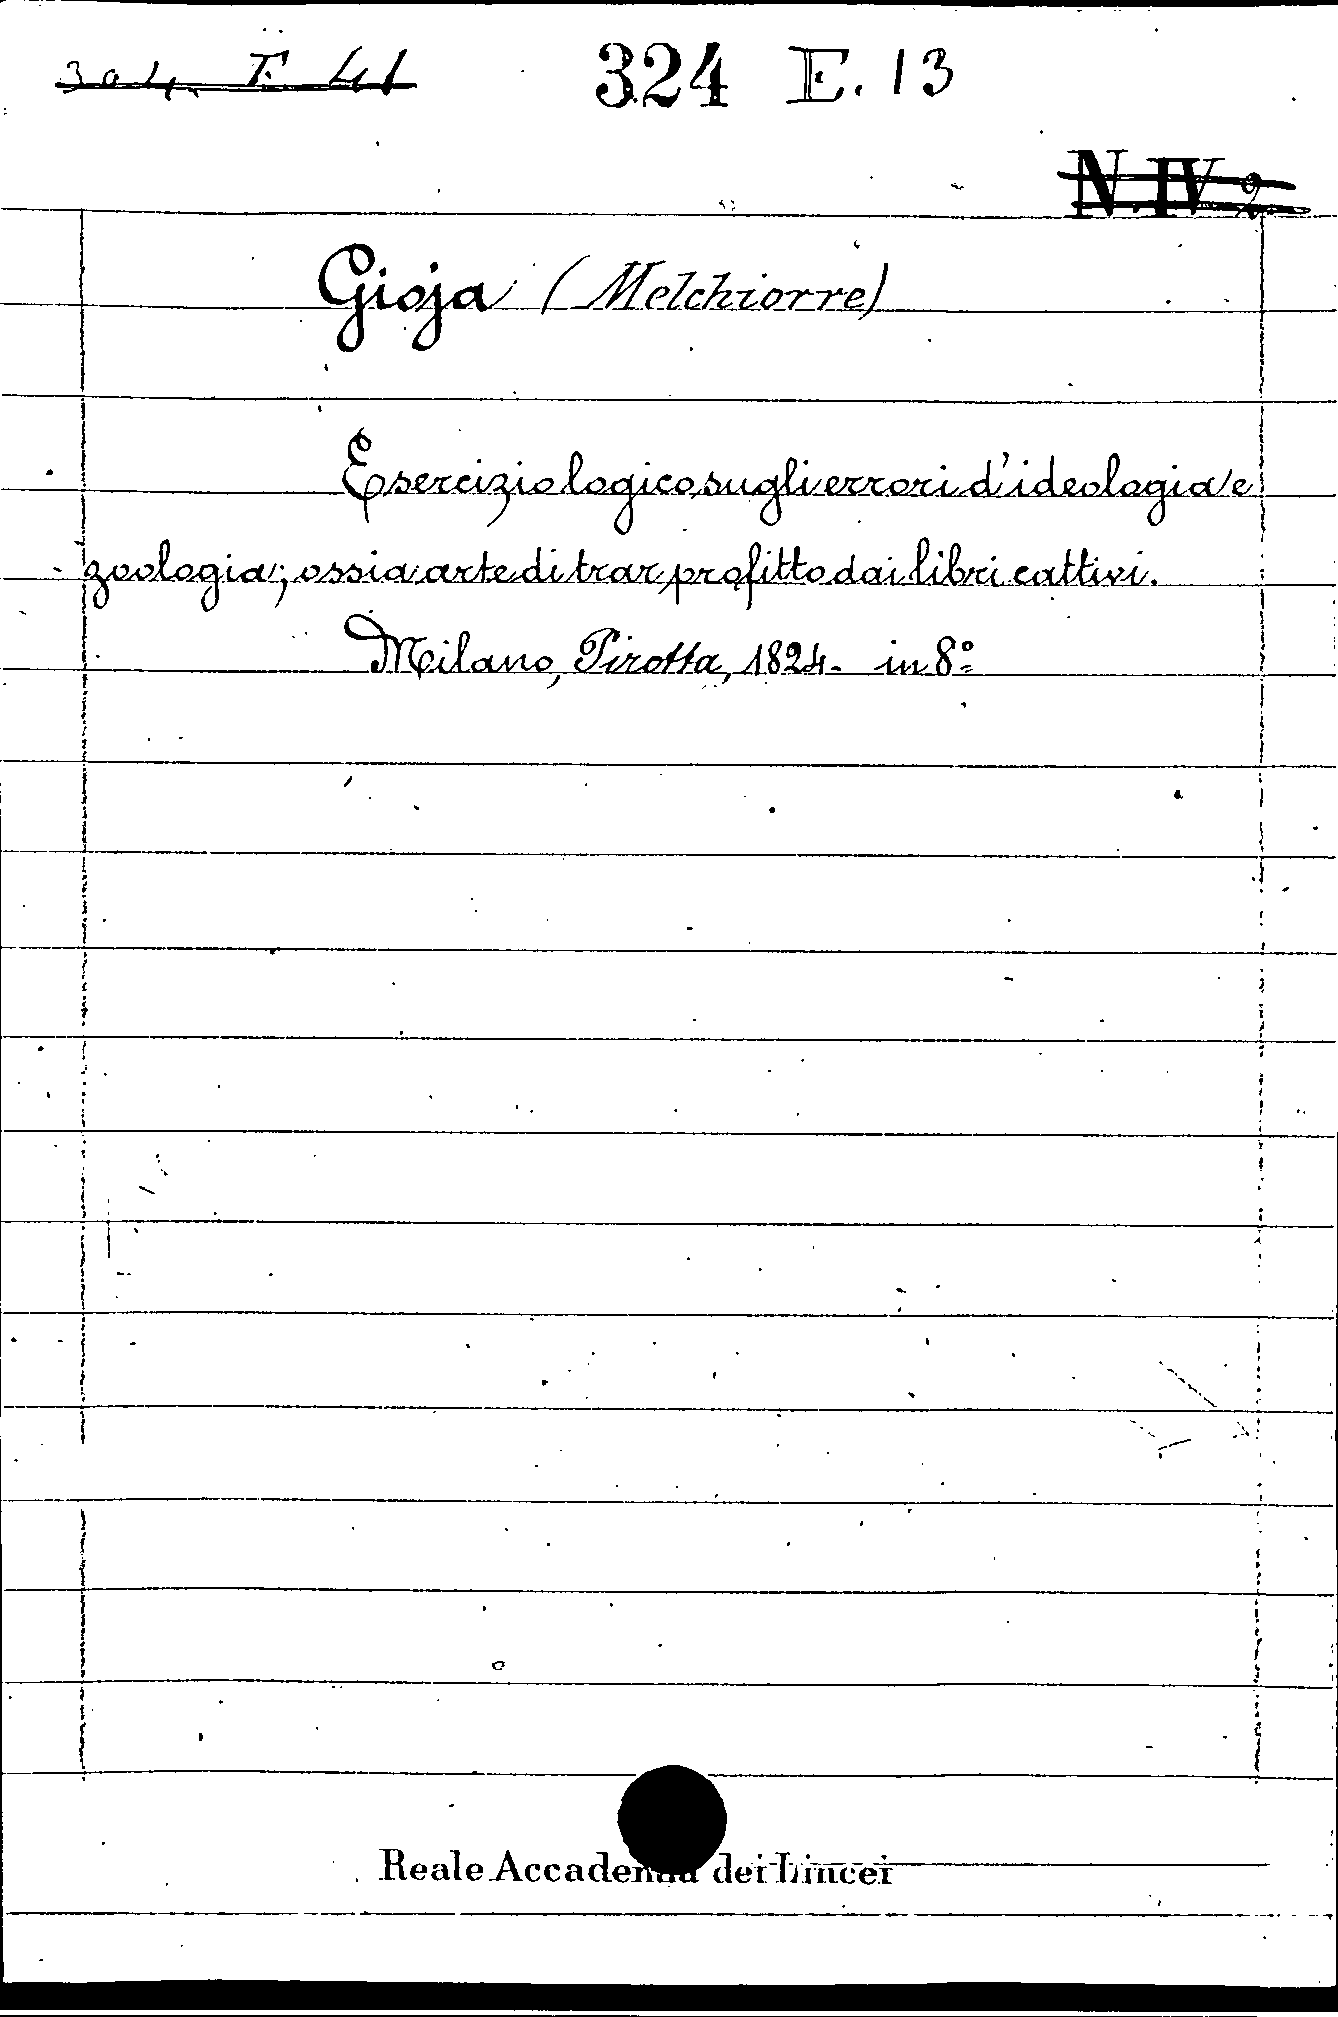 304. E 41 324 E. 13
N. IV 2
Gioja (Melchiorre)
Esercizio logico sugli errori d'ideologia e
zoologia; ossia arte di trar profitto dai libri cattivi.
Milano, Pirotta, 1824. in 8º
Reale Accademia dei Lincei